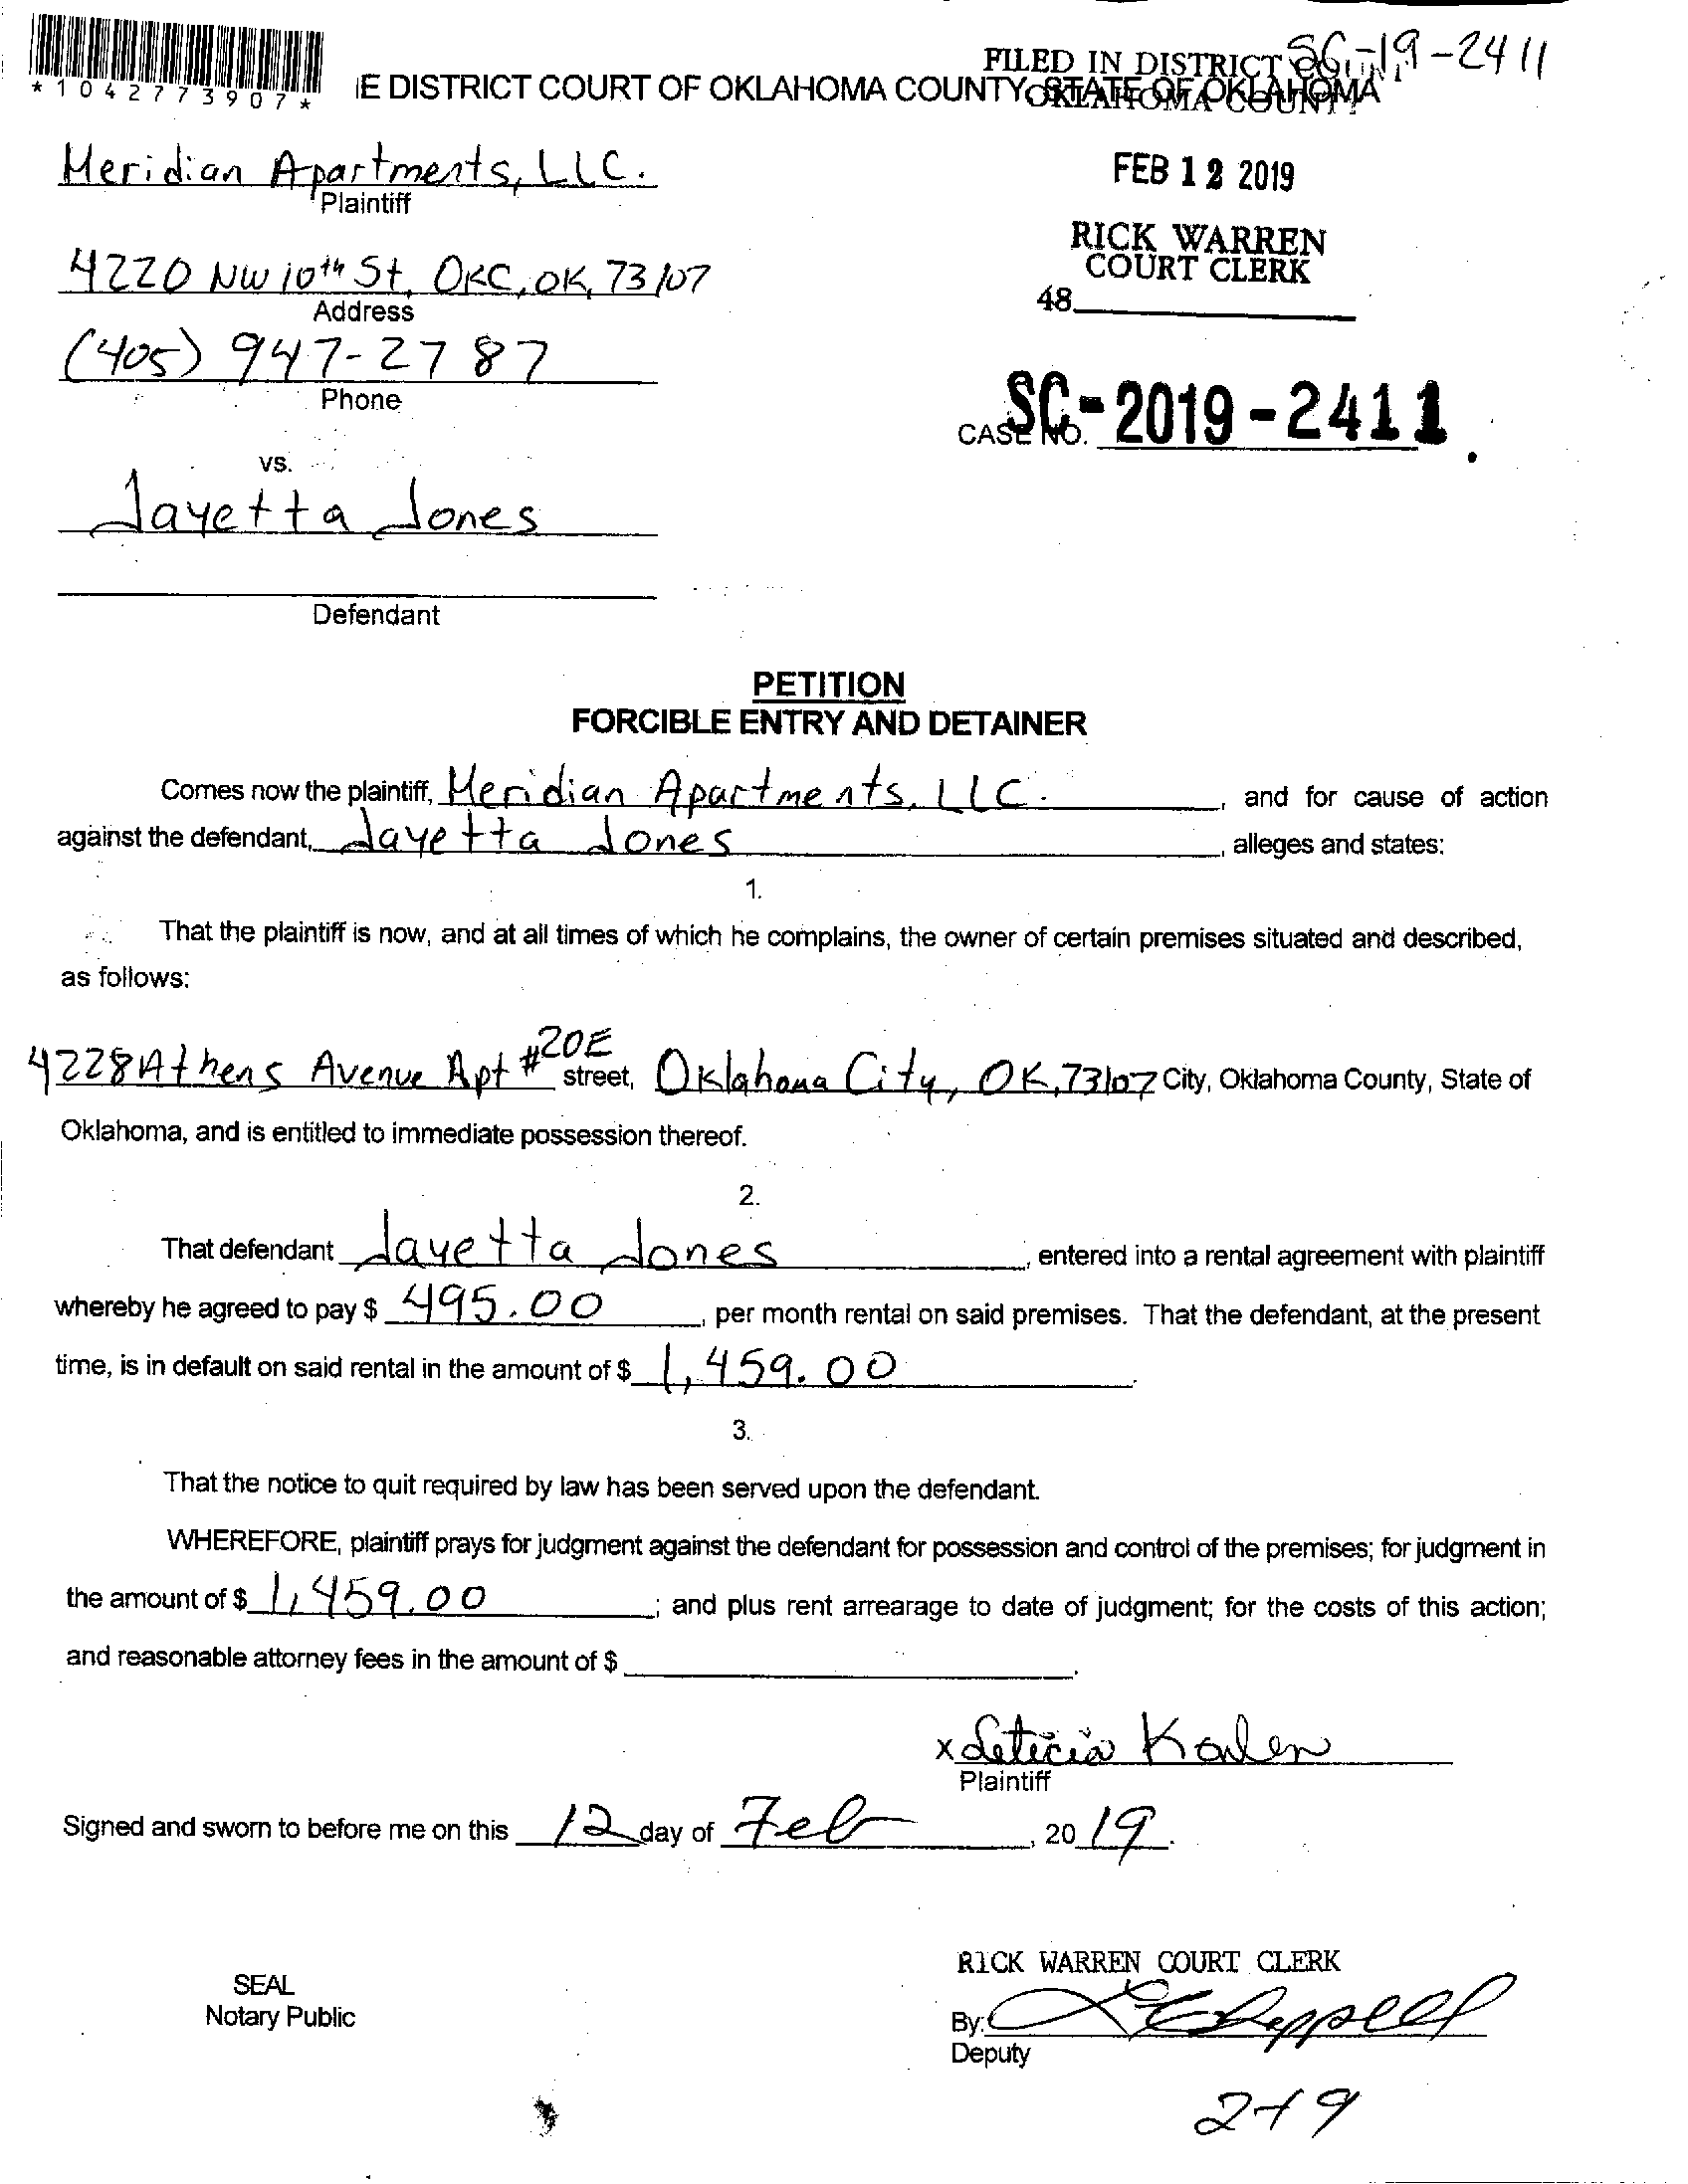 FILED IN DISTRICT SC-19-2411
*1042773907*
E DISTRICT COURT OF OKLAHOMA COUNTY, STATE OF OKLAHOMA
OKLAHOMA COUNTY
Meridian Apartments, LLC.
Plaintiff
FEB 12 2019
RICK WARREN
COURT CLERK
48
4220 NW 10th St, OKC, OK, 73107
Address
(405) 947-2787
Phone
CASE NO. SC-2019-2411
vs.
Jayetta Jones
Defendant
PETITION
FORCIBLE ENTRY AND DETAINER
Comes now the plaintiff, Meridian Apartments, LLC. , and for cause of action
against the defendant, Jayetta Jones , alleges and states:
1.
That the plaintiff is now, and at all times of which he complains, the owner of certain premises situated and described,
as follows:
4228 Athens Avenue Apt #20E street, Oklahoma City, OK, 73107 City, Oklahoma County, State of
Oklahoma, and is entitled to immediate possession thereof.
2.
That defendant Jayetta Jones , entered into a rental agreement with plaintiff
whereby he agreed to pay $ 495.00 , per month rental on said premises. That the defendant, at the present
time, is in default on said rental in the amount of $ 1,459.00 .
3.
That the notice to quit required by law has been served upon the defendant.
WHEREFORE, plaintiff prays for judgment against the defendant for possession and control of the premises; for judgment in
the amount of $ 1,459.00 ; and plus rent arrearage to date of judgment; for the costs of this action;
and reasonable attorney fees in the amount of $ .
x Leticia
Plaintiff
Signed and sworn to before me on this 12 day of Feb , 20 19.
SEAL
Notary Public
RICK WARREN COURT CLERK
By:
Deputy